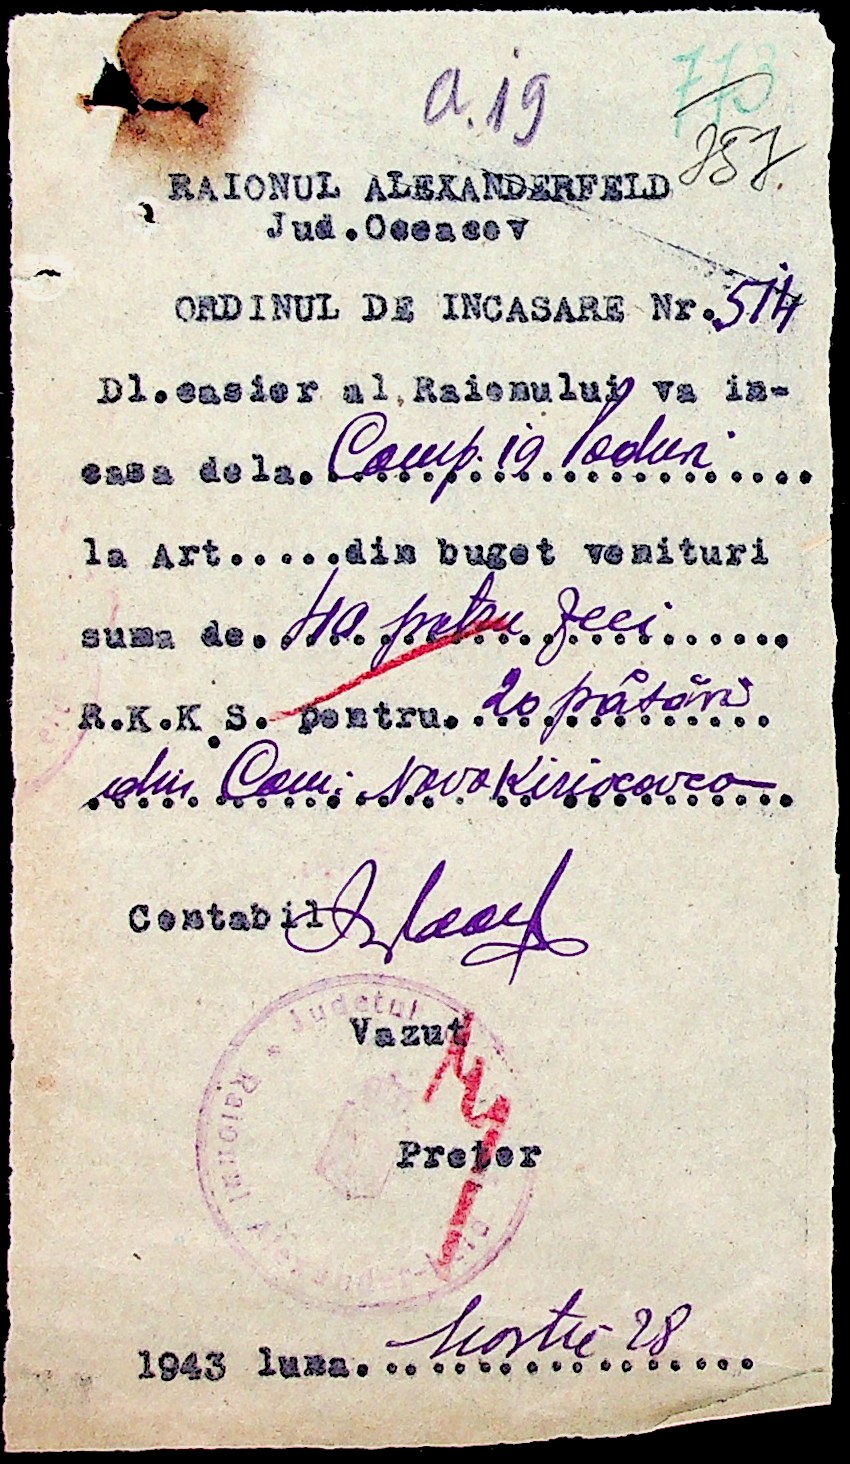 a.19
773
757.
RAIONUL ALEXANDERFELD
Jud.Oceacov
ORDINUL DE INCASARE Nr.514
Dl.casier al Raionului va in-
casa dela. Comp. 19 Poduri
la Art.....din buget venituri
suma de. 40 patru zeci
R.K.K.S. pentru. 20 păsări
din Com. Novo Kiriocovca
Contabil
Judetul
Vazut
Raionul
Pretor
1943 luna. Martie 28